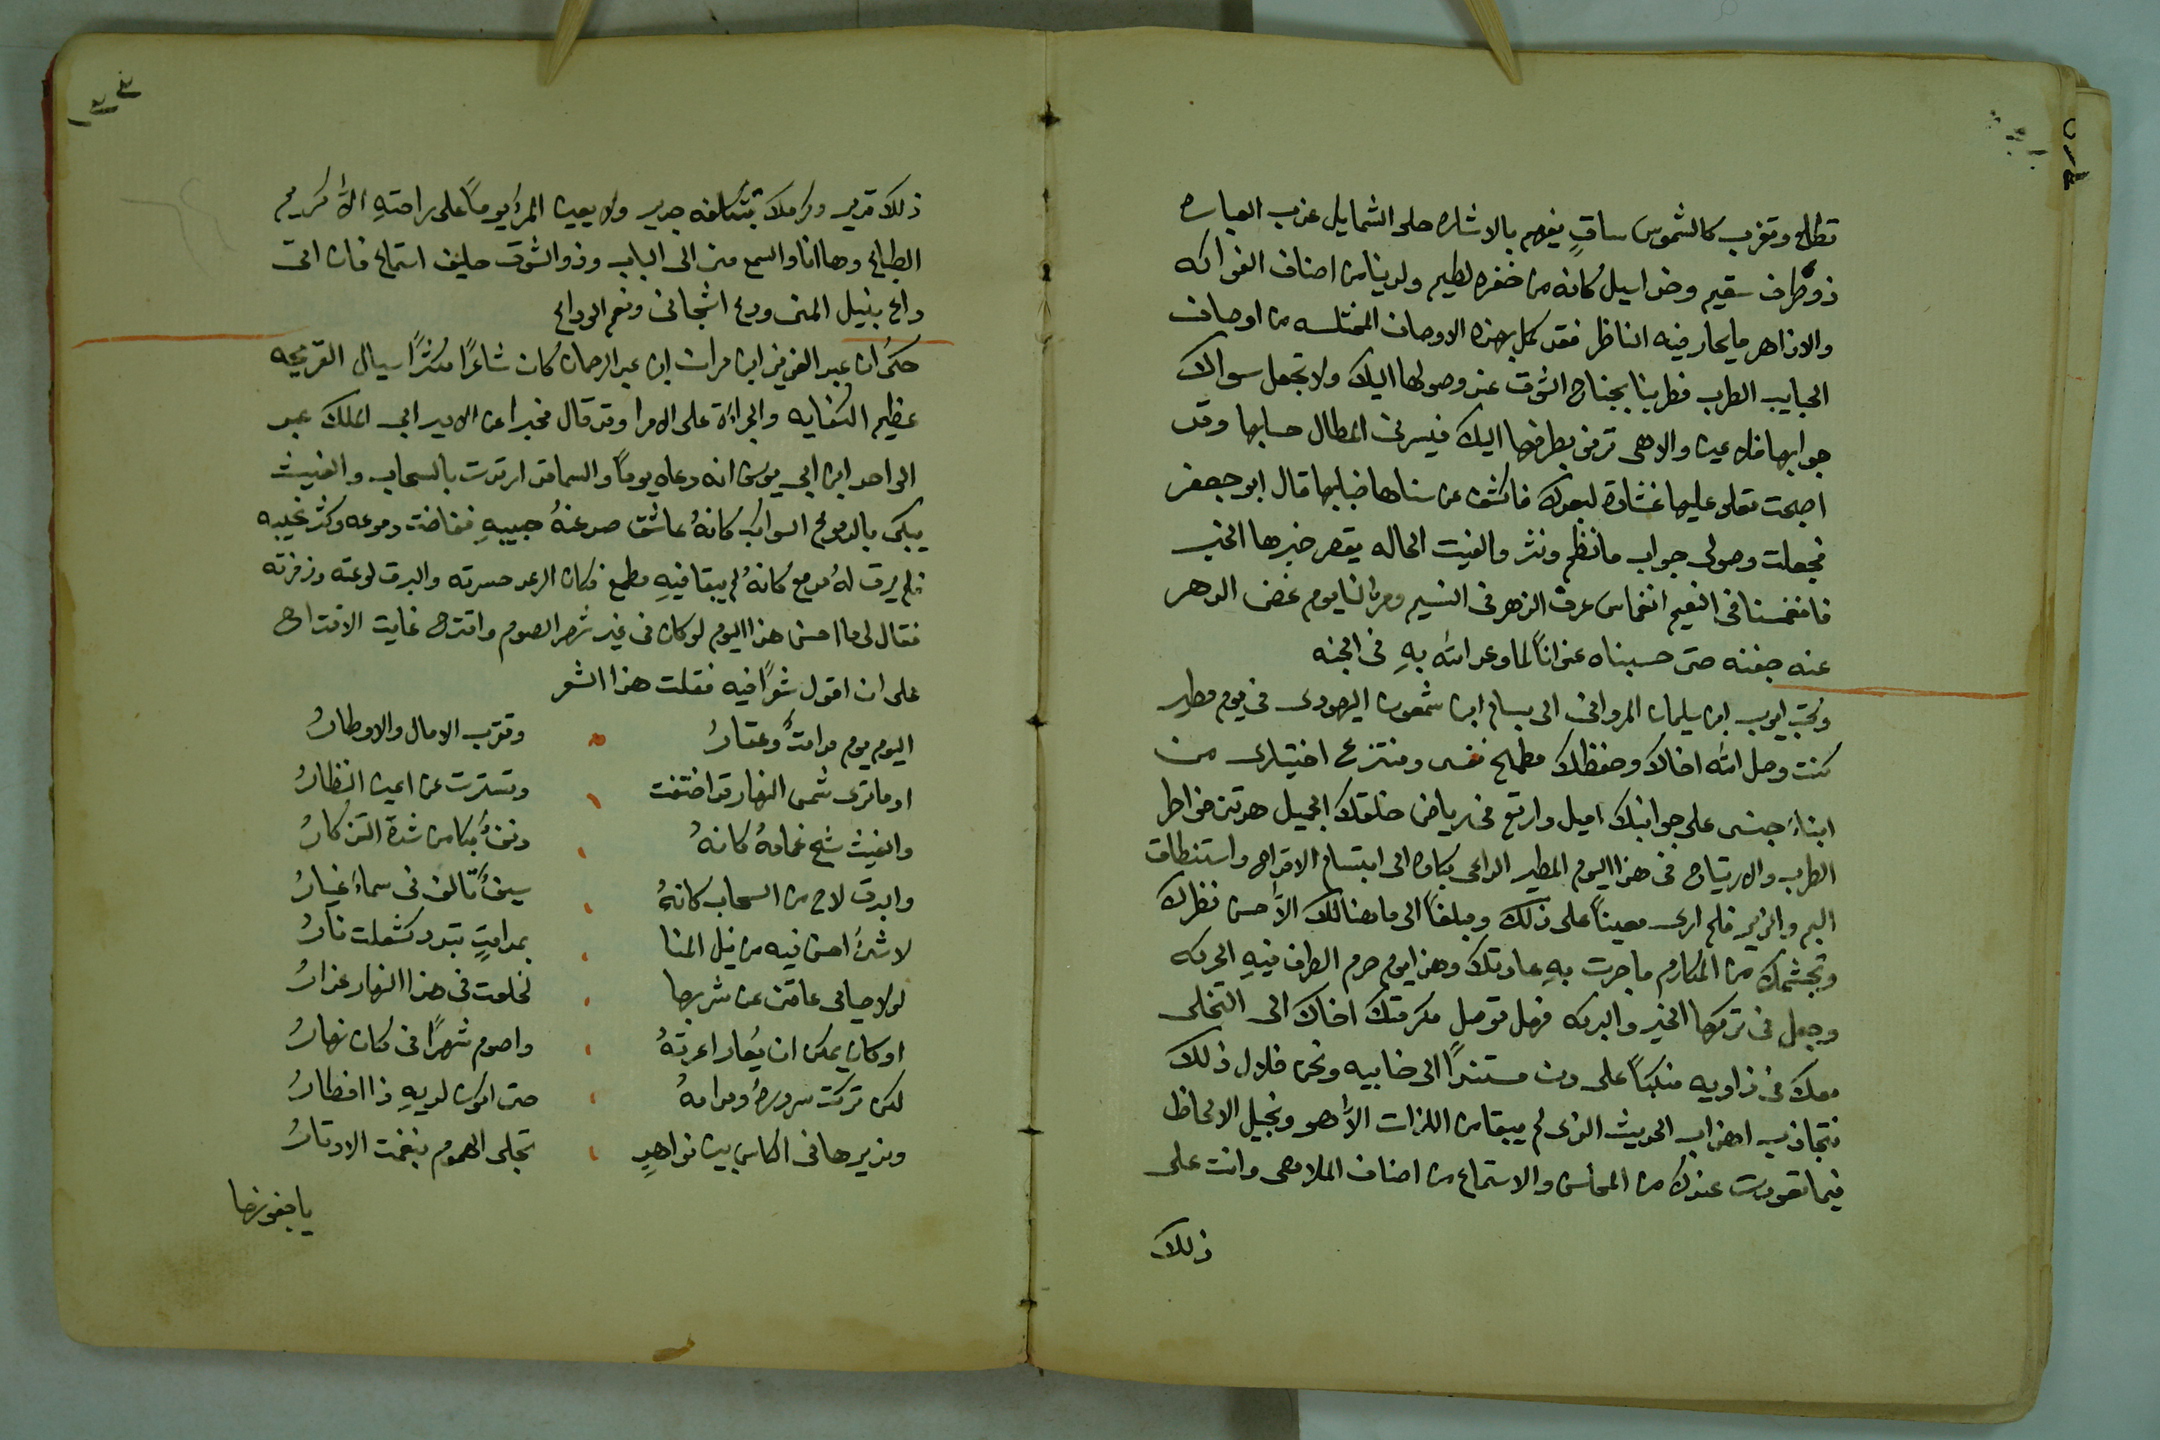 تطلع وتغرب كالشموس ساقٍ يفهم بالاشاره حلى الشمايل عذب العباره
ذو طرف سقيم وخد اسيل كانه من خفره لطيم ولدينا من اصناف الفواكه
والازاهر ما يحار فيه الناظر فقد كمل بهذه الاوصاف المختلسه من اوصاف
الحبايب الطرب فطربنا بجناح الشوق عند وصولها اليك ولا تجعل سواك
جوابها فلا عين والا هى ترمق بطرفها اليك فيسرق المطال حسابها وقد
اصبحت تعلو عليها غشاوة لبعدك فاكشف عن سناها ضبابها قال ابو جعفر
فجعلت وصولى جواب ما نظم ونثر والفيت الحاله يقصر خبرها الخبر
فانغمسنا فى النعيم انغماس عرف الزهر فى النسيم ومر لنا يوم غض الدهر
عنه جفنه حتى حسبناه عنواناً لما وعد الله بهِ فى الجنه
وكتب ايوب ابن سليمان المروانى الى بسام ابن شمعون اليهودى فى يوم مطير
كنت وصل الله اخاك وحفظك مطمح نفسى ومنتزع اختيارى من
ابناء جنسى على جوانبك اميل وارتع فى رياض خلقك الجميل هزتنى خواطر
الطرب والارتياح فى هذا اليوم المطير الداعى بكاوه الى ابتسام الاقداح واستنطاق
البم والزير فلم ارى معيناً على ذلك ومبلغاً الى ما هنالك الاَّ حسن نظرك
وتجشمك من المكارم ما جرت بهِ عادتك وهذا يوم حرم الطرف فيهِ الحركه
وجعل فى تركها الخير والبركه فهل توصل مكرمتك اخاك الى التخلى
معك فى زاويه متكيًا على دن مستنداً الى خابيه ونحن خلال ذلك
نتجاذب اهداب الحديث الذى لم يبقا من اللذات الاَّ هو ونجيل الالحاظ
فيما تعودت عندك من المحاسن والاستماع من اصناف الملاهى وانت على
ذلك
ذلك قدير وكرمك بتكلفه جدير ولا يعين المرء يوماً على راحتهِ الاَّ كريم
الطباع وها انا والسمع منى الى الباب وذو الشوق حليف استماع فان اتى
داعٍ بنيل المنى ودع اشجانى ونعم الوداع
حكى ان عبد العزيز ابن مرات ابن عبد الرحمان كان شاعرًا مكثرًا سيال القريحه
عظيم الكفايه والجراءة على الامرا وقد قال مخبرا عن الامير ابى الملك عبد
الواحد ابن ابى يونس انه دعاه يوماً والسما قد ارتدت بالسحاب والغيث
يبكى بالدموع السواكب كانهُ عاشق صد عنهُ حبيبهِ ففاضت دموعه وكثر نحيبه
فلم يرق لهُ مدمع كانهُ لم يبقا فيهِ مطمع فكان الرعد حسرته والبرق لوعته وزفرته
فقال لى ما احسن هذا اليوم لو كان فى غير شهر الصوم واقترح غايت الاقتراح
على ان اقول شعرًا فيه فقلت هذا الشعر
اليوم يوم مدامةٌ وعقارُ وتقرب الامال والاوطارُ
اوما ترى شمس النهار قد اختفت وتسترت عن اعين النظارُ
والغيث شح غمامهُ كانهُ دنفٌ بكا من شدة التذكارُ
والبرق لاح من السحاب كانهُ سيفٌ تالق فى سماء غبارُ
لا شئ احسن فيه من نيل المنا بمدامةٍ تبدو كشعلت نارُ
لولا صيامى عاقنى عن شربها لخلعت فى هذا النهار عذارُ
او كان يمكن ان يُعار اعرتهُ واصوم شهرًا فى مكان نهارُ
لكن تركت سرورهُ ومدامهُ حتى اكون لديهِ ذا افطارُ
ونديرها فى الكاس بين نواهدٍ تجلى الهموم بنغمت الاوتارُ
يا جفونها